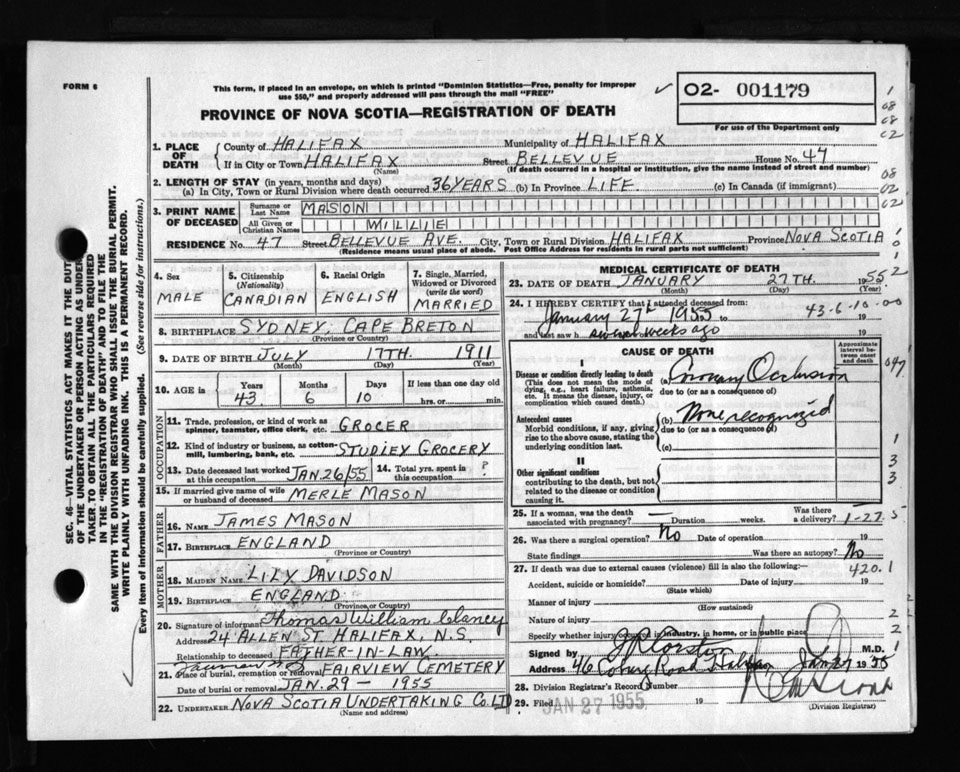 FORM 6
This form, if placed in an envelope, on which is printed "Dominion Statistics—Free, penalty for improper
use $50," and properly addressed will pass through the mail "FREE"
PROVINCE OF NOVA SCOTIA—REGISTRATION OF DEATH
02- 001179
For use of the Department only
SEC. 46—VITAL STATISTICS ACT MAKES IT THE DUTY
OF THE UNDERTAKER OR PERSON ACTING AS UNDER-
TAKER TO OBTAIN ALL THE PARTICULARS REQUIRED
IN THE "REGISTRATION OF DEATH" AND TO FILE THE
SAME WITH THE DIVISION REGISTRAR WHO SHALL ISSUE THE BURIAL PERMIT.
WRITE PLAINLY WITH UNFADING INK. THIS IS A PERMANENT RECORD.
Every item of information should be carefully supplied. (See reverse side for instructions.)
1. PLACE OF DEATH
County of HALIFAX Municipality of HALIFAX
If in City or Town HALIFAX Street BELLEVUE House No. 47
(Name) (If death occurred in a hospital or institution, give the name instead of street and number)
2. LENGTH OF STAY (in years, months and days)
(a) In City, Town or Rural Division where death occurred 36 YEARS (b) In Province LIFE (c) In Canada (if immigrant)
3. PRINT NAME OF DECEASED
Surname or Last Name MASON
All Given or Christian Names MILLIE
RESIDENCE No. 47 Street BELLEVUE AVE. City, Town or Rural Division HALIFAX Province NOVA SCOTIA
(Residence means usual place of abode. Post Office Address for residents in rural parts not sufficient)
4. Sex MALE
5. Citizenship (Nationality) CANADIAN
6. Racial Origin ENGLISH
7. Single, Married, Widowed or Divorced (write the word) MARRIED
8. BIRTHPLACE SYDNEY, CAPE BRETON
(Province or Country)
9. DATE OF BIRTH JULY 17TH. 1911
(Month) (Day) (Year)
10. AGE in Years 43 Months 6 Days 10 If less than one day old hrs. or min.
OCCUPATION
11. Trade, profession, or kind of work as spinner, teamster, office clerk, etc. GROCER
12. Kind of industry or business, as cotton-mill, lumbering, bank, etc. STUDLEY GROCERY
13. Date deceased last worked at this occupation JAN. 26/55 14. Total yrs. spent in this occupation ?
15. If married give name of wife or husband of deceased MERLE MASON
FATHER
16. NAME JAMES MASON
17. BIRTHPLACE ENGLAND
(Province or Country)
MOTHER
18. MAIDEN NAME LILY DAVIDSON
19. BIRTHPLACE ENGLAND
(Province or Country)
20. Signature of informant Thomas William Clancy
Address 24 ALLEN ST. HALIFAX, N.S.
Relationship to deceased FATHER-IN-LAW
21. Place of burial, cremation or removal FAIRVIEW CEMETERY
Date of burial or removal JAN. 29 - 1955
22. UNDERTAKER NOVA SCOTIA UNDERTAKING CO. LTD
(Name and address)
MEDICAL CERTIFICATE OF DEATH
23. DATE OF DEATH JANUARY 27TH. 1955
(Month) (Day) (Year)
24. I HEREBY CERTIFY that I attended deceased from:
January 27th 1955 to 19
43-6-10-00
and last saw h weeks ago 19
CAUSE OF DEATH
Approximate interval between onset and death
I
Disease or condition directly leading to death
(This does not mean the mode of dying, e.g., heart failure, asthenia, etc. It means the disease, injury, or complication which caused death.)
(a) Coronary Occlusion
due to (or as a consequence of)
Antecedent causes
Morbid conditions, if any, giving rise to the above cause, stating the underlying condition last.
(b) None recognized
due to (or as a consequence of)
(c)
II
Other significant conditions
contributing to the death, but not related to the disease or condition causing it.
25. If a woman, was the death associated with pregnancy? — Duration weeks. Was there a delivery?
1-27-5
26. Was there a surgical operation? No Date of operation 19
State findings Was there an autopsy? No
27. If death was due to external causes (violence) fill in also the following:—
420.1
Accident, suicide or homicide? Date of injury 19
(State which)
Manner of injury
(How sustained)
Nature of injury
Specify whether injury occurred in industry, in home, or in public place
Signed by M.D.
Address 46 Coburg Road Halifax Jan 27 1955
28. Division Registrar's Record Number
29. Filed JAN 27 1955 19
(Division Registrar)